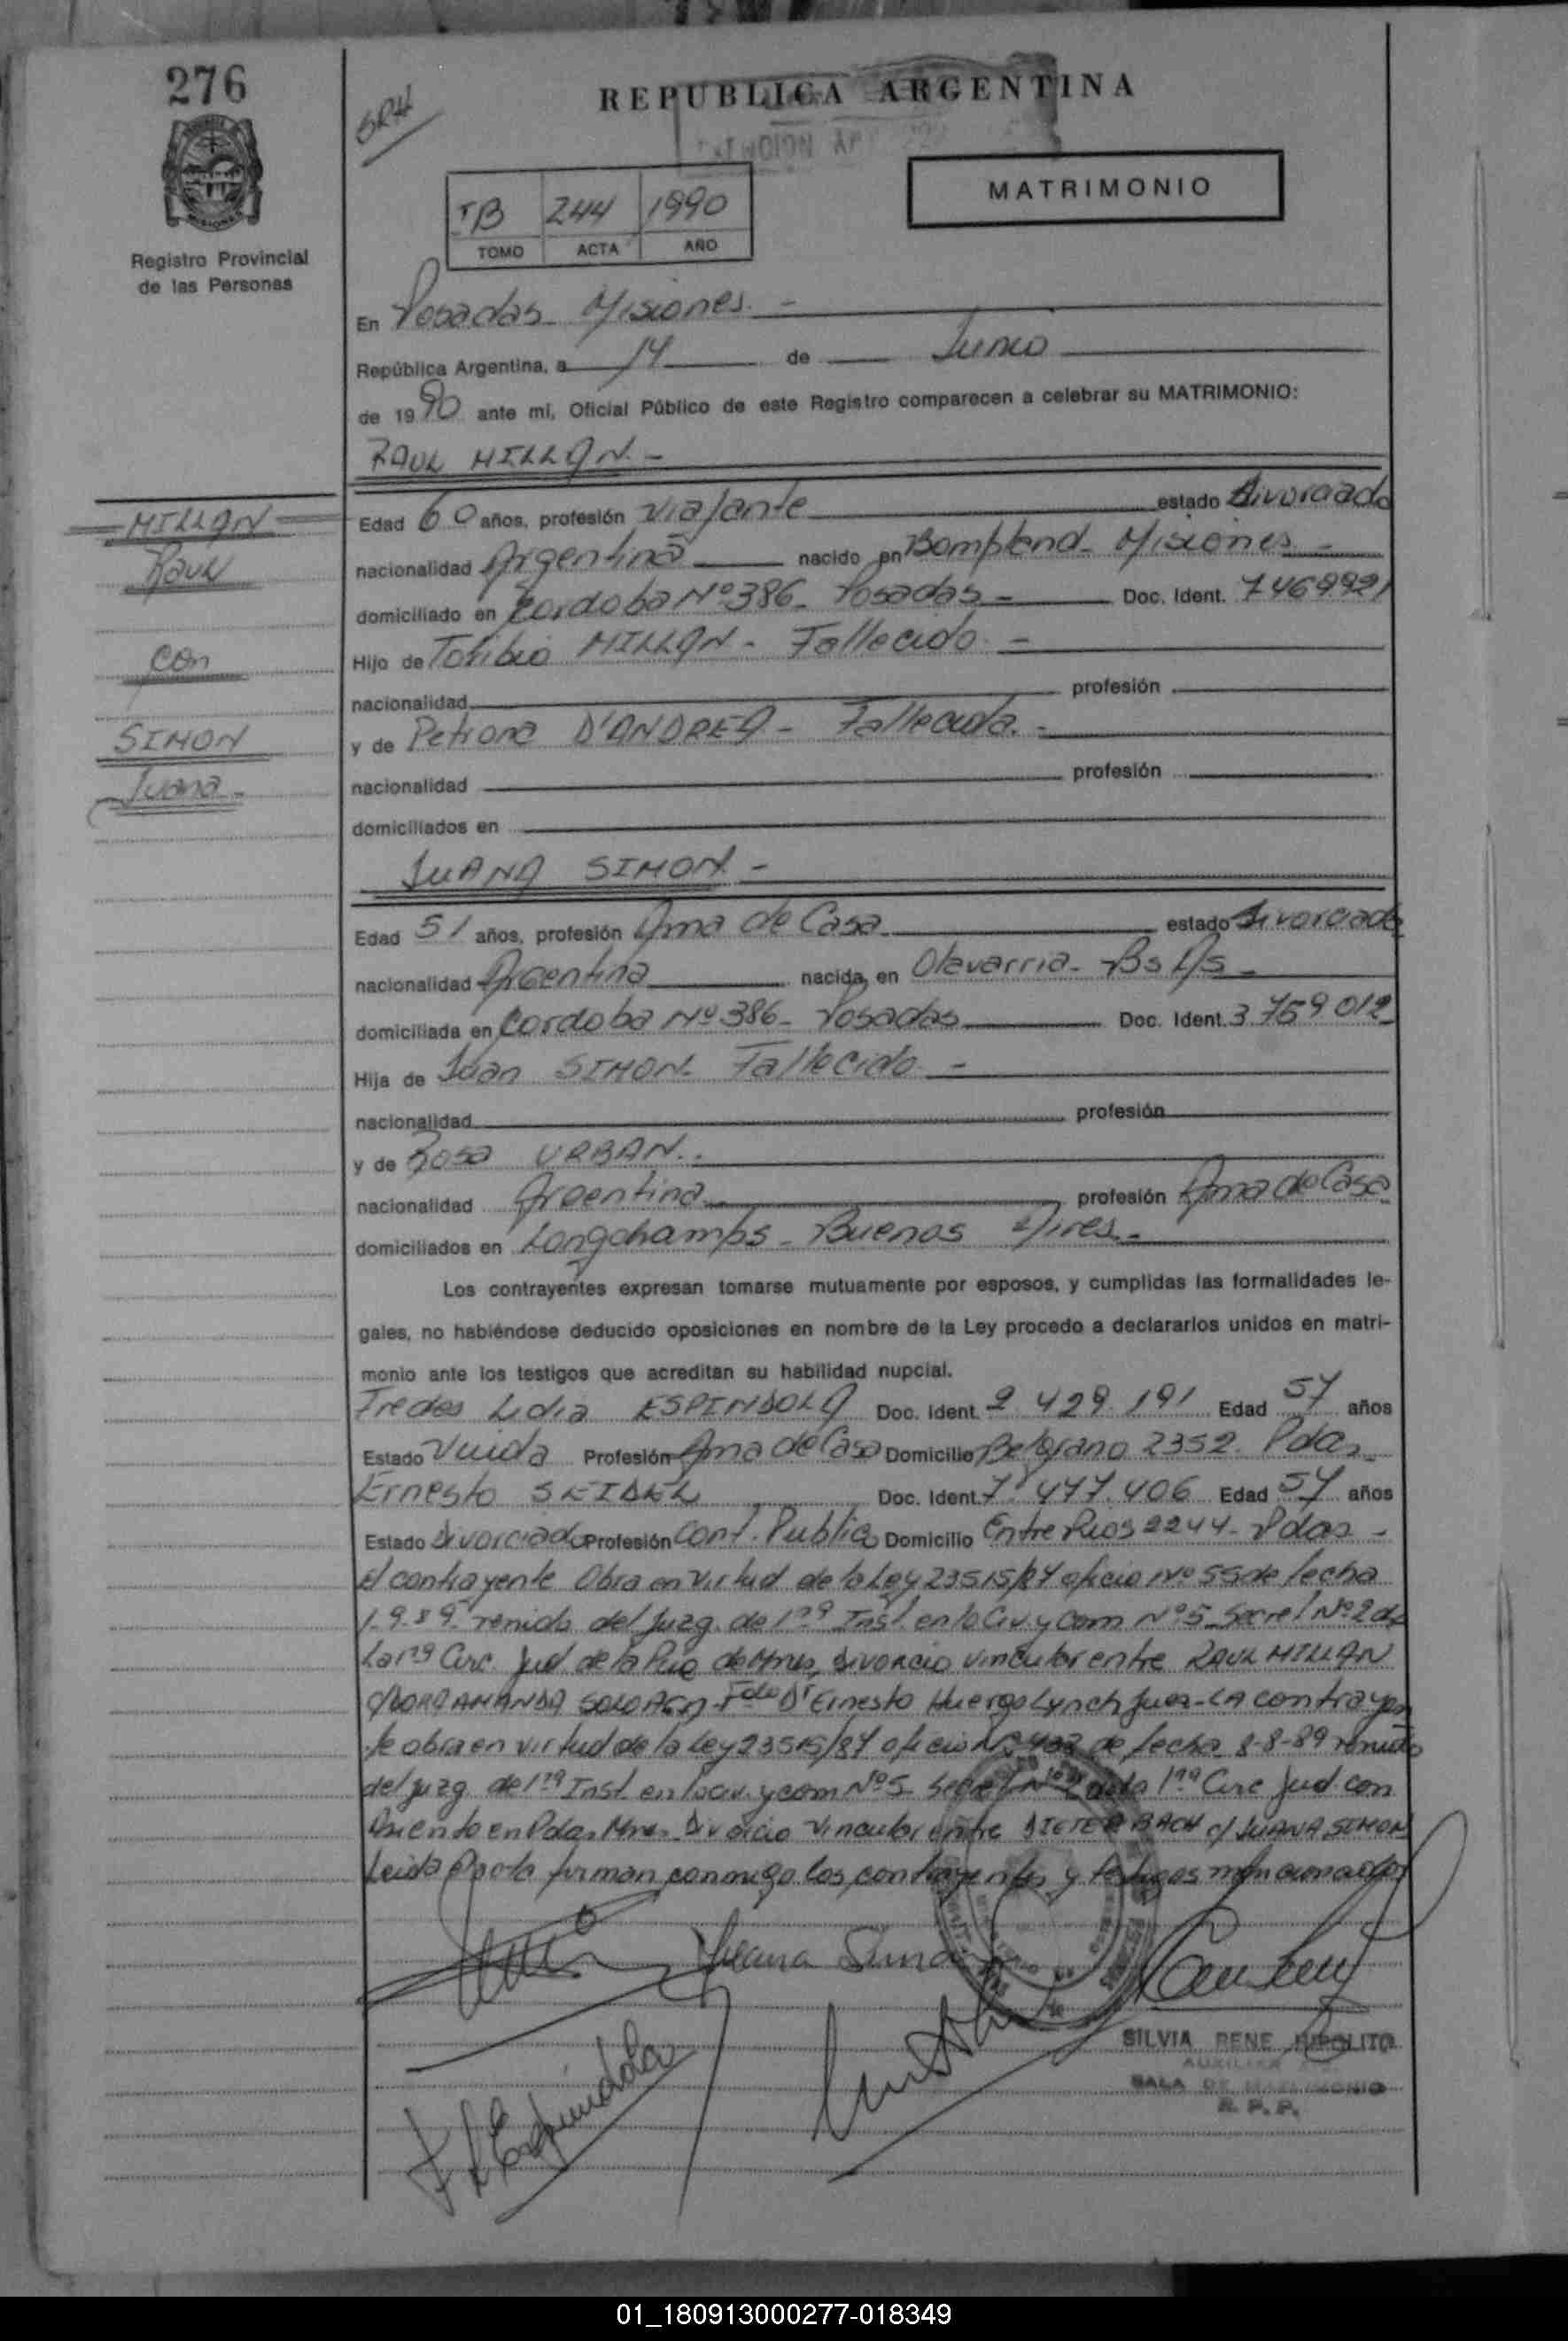 276
SRH
REPUBLICA ARGENTINA
MATRIMONIO
TB 244 1990
TOMO ACTA AÑO
Registro Provincial
de las Personas
En Posadas Misiones. -
República Argentina, a 14 de Junio
de 1990 ante mi, Oficial Público de este Registro comparecen a celebrar su MATRIMONIO:
RAUL MILLAN. -
MILLAN
Raul
con
SIMON
Juana.
Edad 60 años, profesión Viajante estado divorciado
nacionalidad Argentina nacido en Bompland - Misiones -
domiciliado en Cordoba Nº 386 - Posadas - Doc. Ident. 7469921
Hijo de Toribio MILLAN - Fallecido. -
nacionalidad profesión
y de Petrona D'ANDREA - Fallecida. -
nacionalidad profesión
domiciliados en
JUANA SIMON -
Edad 51 años, profesión Ama de Casa estado divorciada
nacionalidad Argentina nacida en Olavarria - Bs As -
domiciliada en Cordoba Nº 386 - Posadas Doc. Ident. 3.759.012
Hija de Juan SIMON - Fallecido -
nacionalidad profesión
y de Rosa URBAN..
nacionalidad Argentina profesión Ama de Casa
domiciliados en Longchamps - Buenos Aires. -
Los contrayentes expresan tomarse mutuamente por esposos, y cumplidas las formalidades le-
gales, no habiéndose deducido oposiciones en nombre de la Ley procedo a declararlos unidos en matri-
monio ante los testigos que acreditan su habilidad nupcial.
Lidia ESPINDOLA Doc. Ident. 2.429.191 Edad 57 años
Estado Viuda Profesión Ama de Casa Domicilio Belgrano 2352. Pdas
Ernesto SEIDEL Doc. Ident. 7.477.406 Edad 57 años
Estado Divorciado Profesión Cont. Publico Domicilio Entre Rios 2244 - Pdas -
El contrayente Obra en virtud de la Ley 23515/87 oficio Nº 55 de fecha
1.9.89. del Juzg. de 1ra Inst. en lo Civ. y Com Nº 5 Secret Nº 2 de
La 1ra Circ. Jud de la Pcia de Mnes, divorcio vincular entre RAUL MILLAN
c/ DORA AMANDA Fdo Dr Ernesto Huergo Lynch Juez - LA contrayen
te obra en virtud de la Ley 23515/87 oficio Nº de fecha 8-8-89
del juzg. de 1ra Inst. en lo civ. y com Nº 5 Secret Nº 2 de la 1ra Circ Jud con
Asiento en Pdas. Mnes. Divorcio vincular entre DIETER BACH c/ JUANA SIMON
Leida el acta firman conmigo los contrayentes y testigos mencionados
Juana Simon
F L Espindola
SILVIA RENE HIPOLITO
AUXILIAR
SALA DE MATRIMONIO
R. P. P.
01_180913000277-018349